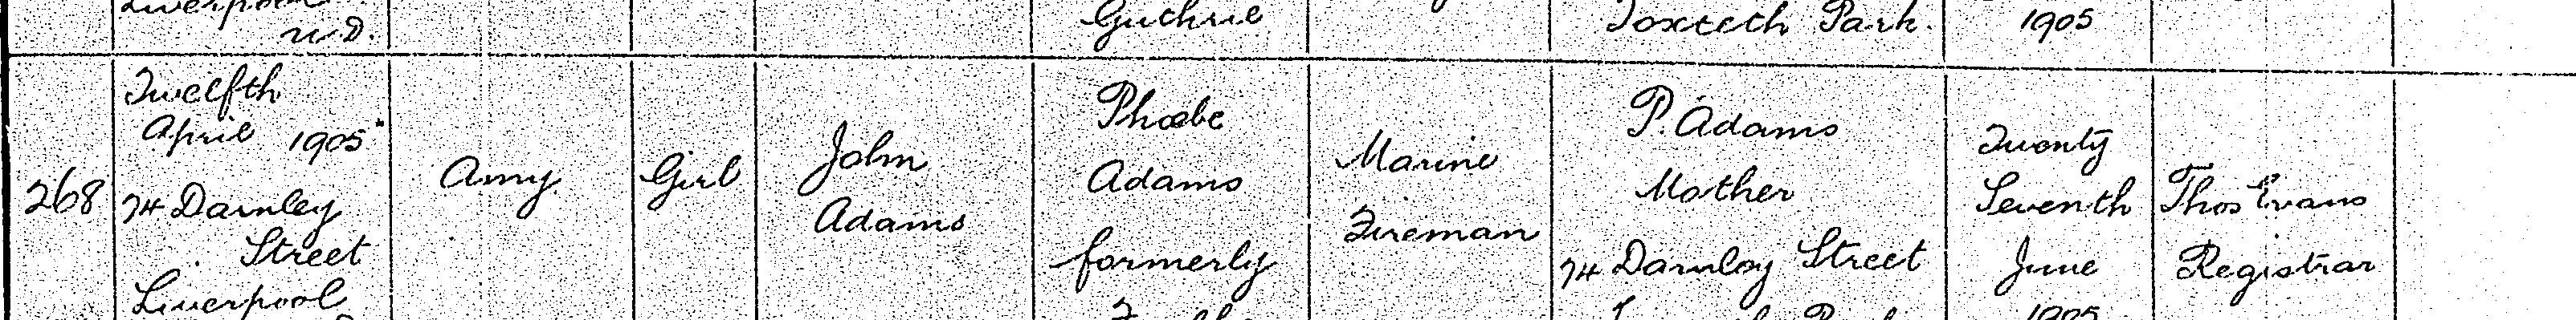 Liverpool
U.D.
Guthrie
Toxteth Park.
1905
268
Twelfth
April 1905
74 Darnley
Street
Liverpool
Amy
Girl
John
Adams
Phoebe
Adams
formerly
Marine
Fireman
P. Adams
Mother
74 Darnley Street
Twenty
Seventh
June
1905
Thos Evans
Registrar